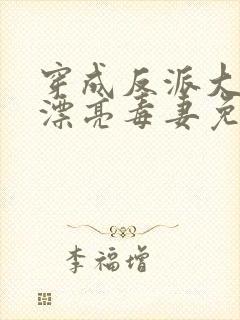 穿成反派大
漂亮毒妻免
李福增